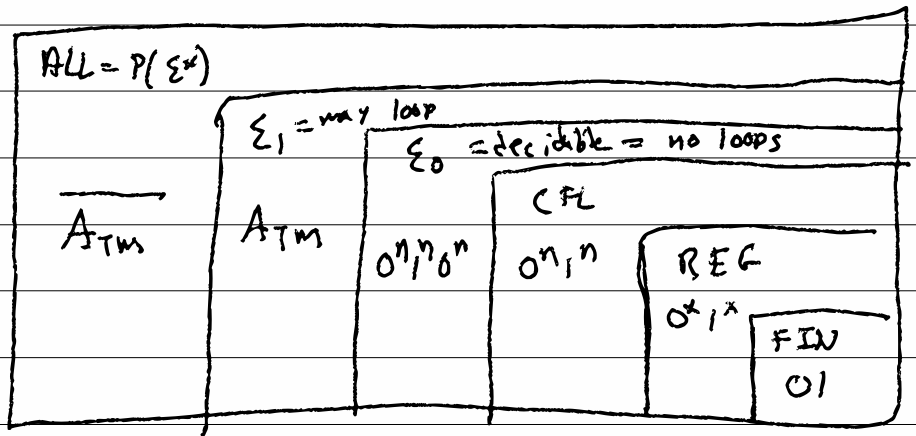 ALL = P(Σ*)
Σ₁ = may loop
Σ₀ = decidable = no loops
CFL
REG
FIN
A̅T̅M̅
ATM
0ⁿ1ⁿ0ⁿ
0ⁿ1ⁿ
0*1*
01